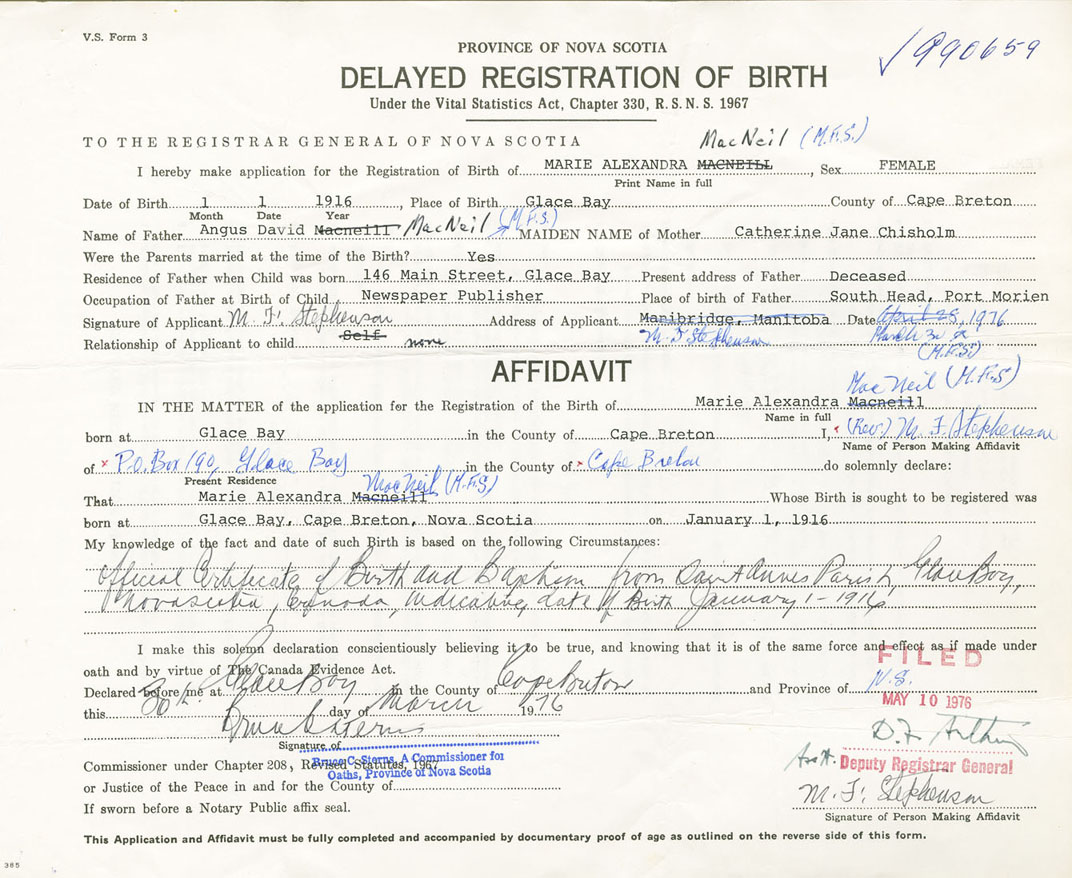 V.S. Form 3
990659
PROVINCE OF NOVA SCOTIA
DELAYED REGISTRATION OF BIRTH
Under the Vital Statistics Act, Chapter 330, R.S.N.S. 1967
TO THE REGISTRAR GENERAL OF NOVA SCOTIA
MacNeil (M.F.S.)
I hereby make application for the Registration of Birth of MARIE ALEXANDRA MACNEILL, Sex FEMALE
Print Name in full
Date of Birth 1 1 1916, Place of Birth Glace Bay County of Cape Breton
Month Date Year
Name of Father Angus David Macneill MacNeil (M.F.S.) MAIDEN NAME of Mother Catherine Jane Chisholm
Were the Parents married at the time of the Birth? Yes
Residence of Father when Child was born 146 Main Street, Glace Bay Present address of Father Deceased
Occupation of Father at Birth of Child Newspaper Publisher Place of birth of Father South Head, Port Morien
Signature of Applicant M. F. Stephenson Address of Applicant Manibridge, Manitoba Date April 28, 1976
Relationship of Applicant to child Self none M. F Stephenson March 30
(M.F.S.)
AFFIDAVIT
MacNeil (M.F.S)
IN THE MATTER of the application for the Registration of the Birth of Marie Alexandra Macneill
Name in full
born at Glace Bay in the County of Cape Breton I, x (Rev.) M F Stephenson
Name of Person Making Affidavit
of x P.O. Box 190, Glace Bay in the County of x Cape Breton do solemnly declare:
Present Residence
MacNeil (M.F.S)
That Marie Alexandra Macneill Whose Birth is sought to be registered was
born at Glace Bay, Cape Breton, Nova Scotia on January 1, 1916
My knowledge of the fact and date of such Birth is based on the following Circumstances:
Official Certificate of Birth and Baptism from Saint Annes Parish, Glace Bay,
Nova Scotia, Canada, indicating date of Birth January 1-1916
I make this solemn declaration conscientiously believing it to be true, and knowing that it is of the same force and effect as if made under
oath and by virtue of The Canada Evidence Act.
FILED
Declared before me at Glace Bay in the County of Cape Breton and Province of N.S.
this 30th. day of March 1976
MAY 10 1976
Bruce C Sterns
Signature of
Bruce C. Sterns, A Commissioner for
Oaths, Province of Nova Scotia
Commissioner under Chapter 208, Revised Statutes, 1967
Asst. Deputy Registrar General
or Justice of the Peace in and for the County of
M. F. Stephenson
If sworn before a Notary Public affix seal.
Signature of Person Making Affidavit
This Application and Affidavit must be fully completed and accompanied by documentary proof of age as outlined on the reverse side of this form.
385